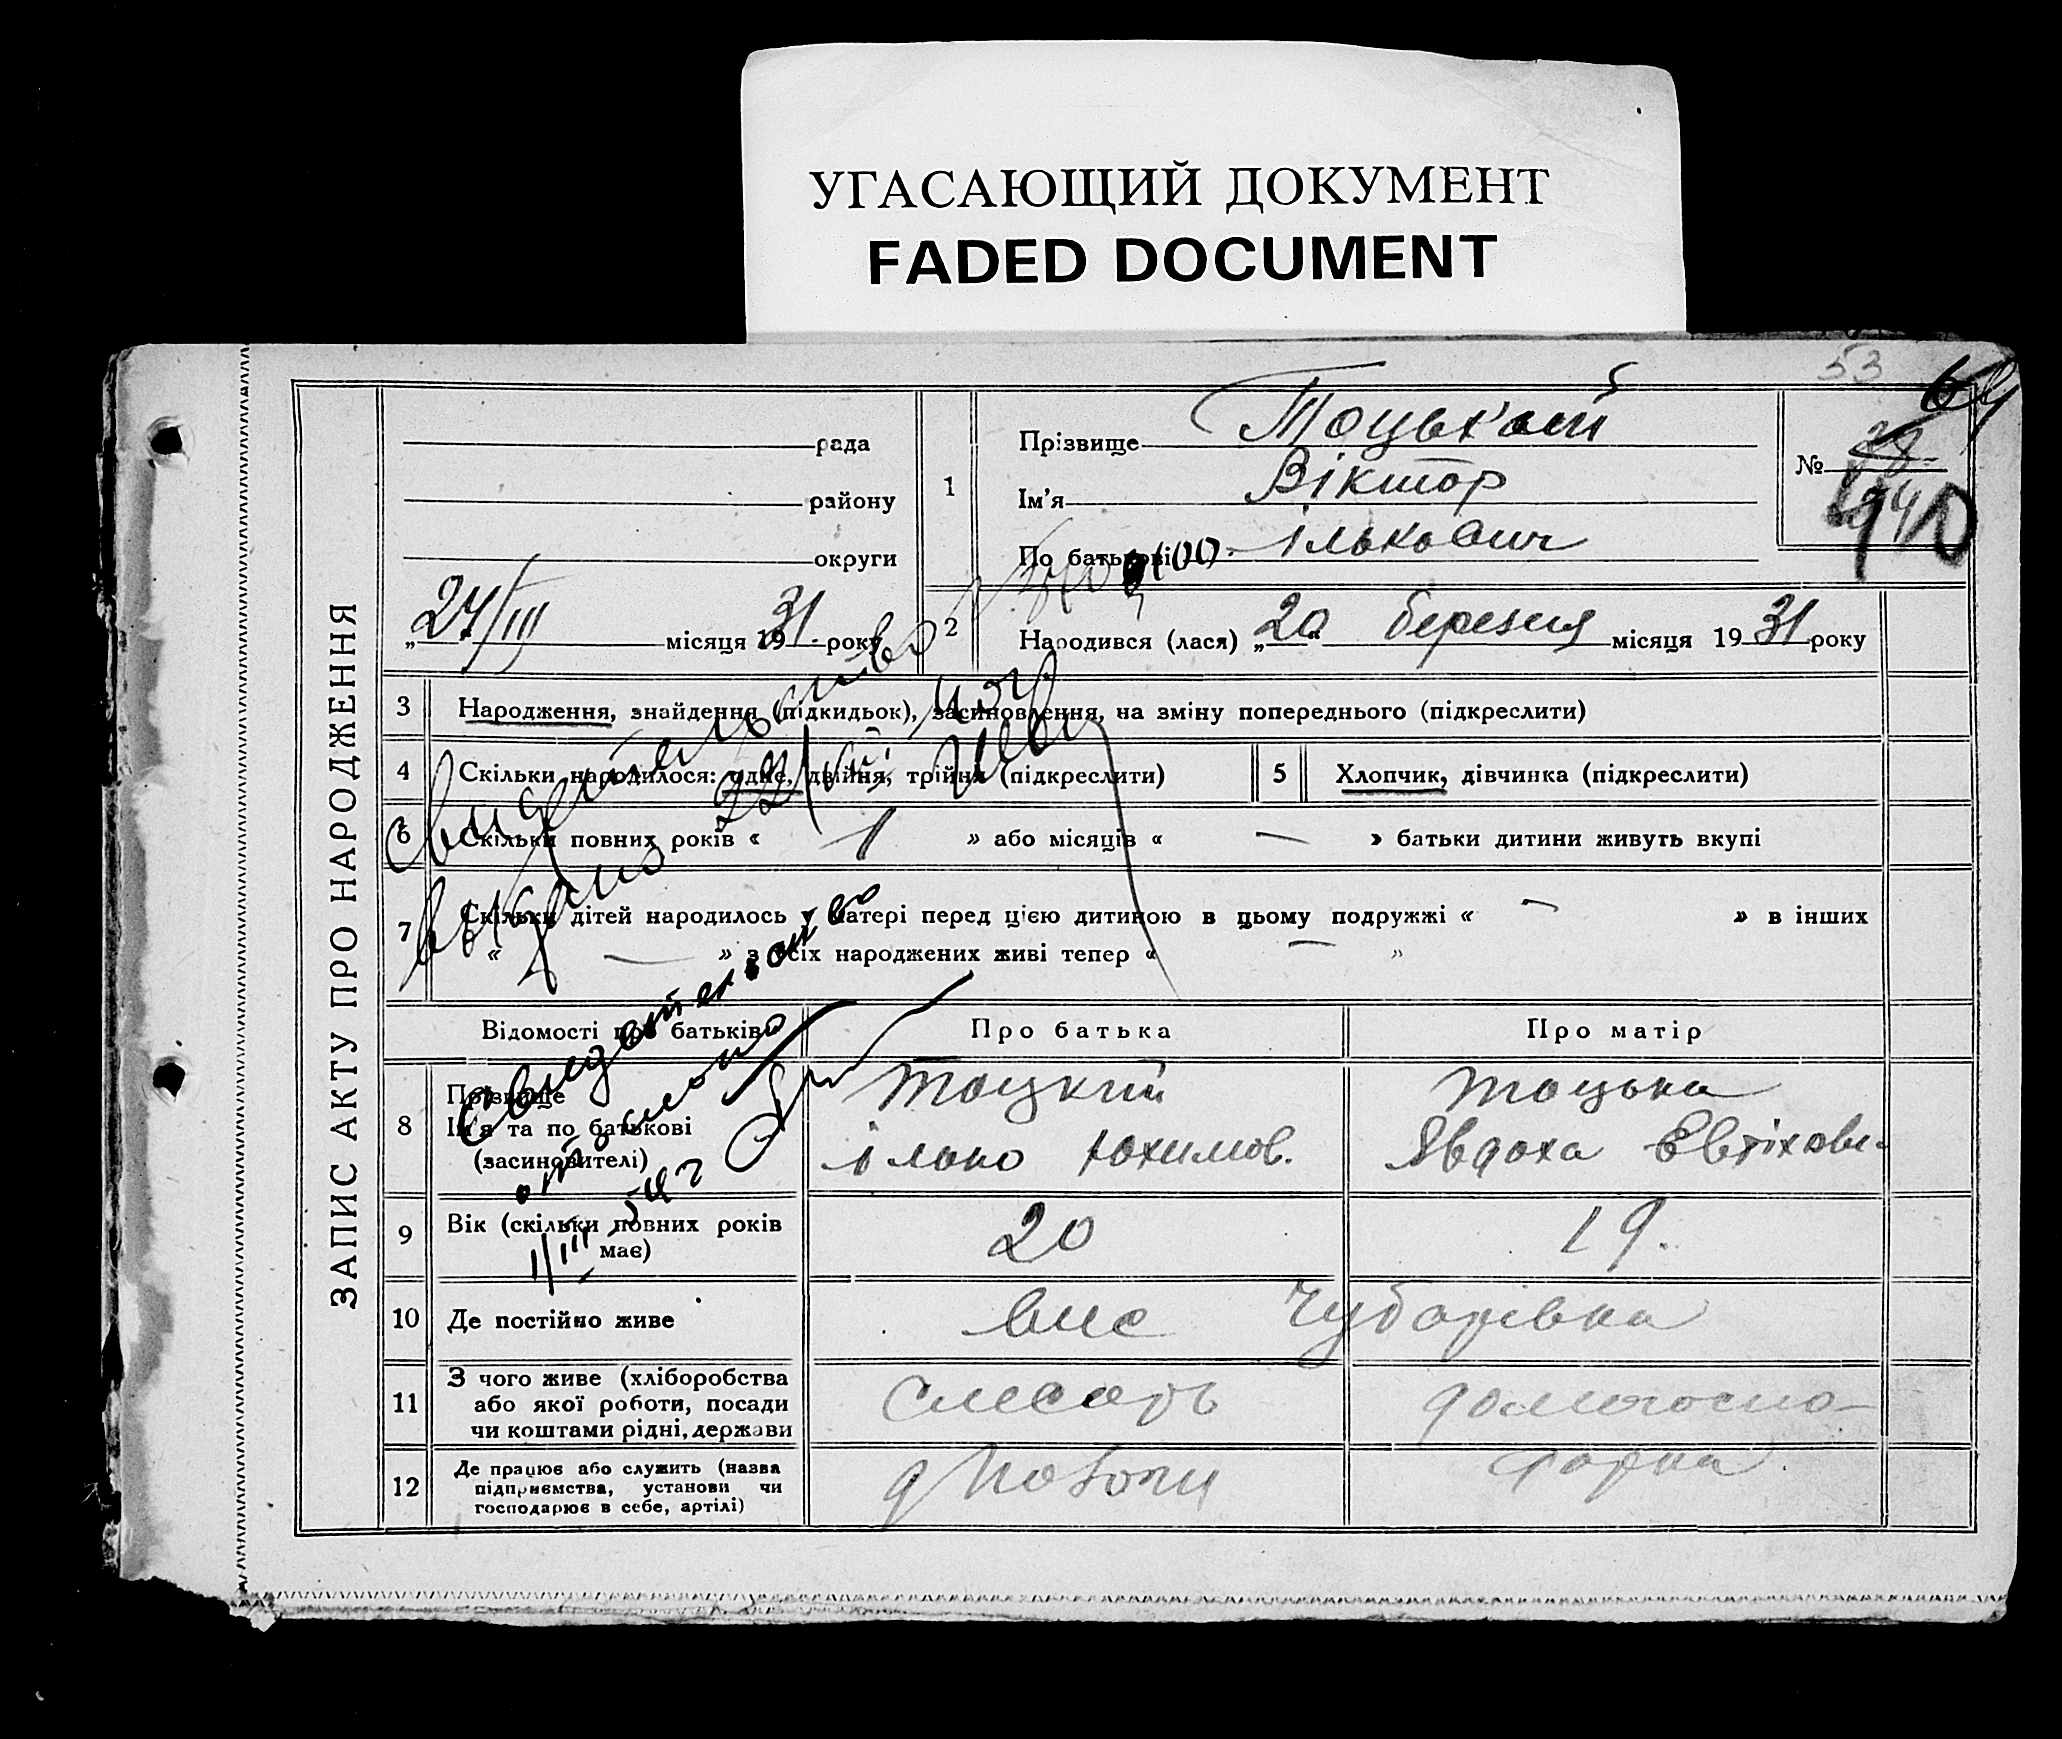 УГАСАЮЩИЙ ДОКУМЕНТ
FADED DOCUMENT
53
64
ЗАПИС АКТУ ПРО НАРОДЖЕННЯ
рада
району
округи
„24/III місяця 1931 року
1
Прізвище Тоцький
Ім'я Віктор
По батькові Ількович
№
2
Народився (лася) „20" березня місяця 1931 року
3 Народження, знайдення (підкидьок), засиновлення, на зміну попереднього (підкреслити)
4 Скільки народилося: одне, двійня, трійня (підкреслити)
5 Хлопчик, дівчинка (підкреслити)
6 Скільки повних років « 1 » або місяців « — » батьки дитини живуть вкупі
7 Скільки дітей народилось у матері перед цією дитиною в цьому подружжі « — » в інших
« — » з усіх народжених живі тепер « — »
Свидетельство
выдано
Свидетельство
1/III
Відомості про батьків
Про батька
Про матір
8 Прізвище
Ім'я та по батькові
(засиновителі)
Тоцкий
Ілько Юхимов.
Тоцька
Явдоха Евтіхові-
9 Вік (скільки повних років
має)
20
19.
10 Де постійно живе
вис Чубарівка
11 З чого живе (хліборобства
або якої роботи, посади
чи коштами рідні, держави
слесарь
домогоспо-
12 Де працює або служить (назва
підприємства, установи чи
господарює в себе, артілі)
дарка